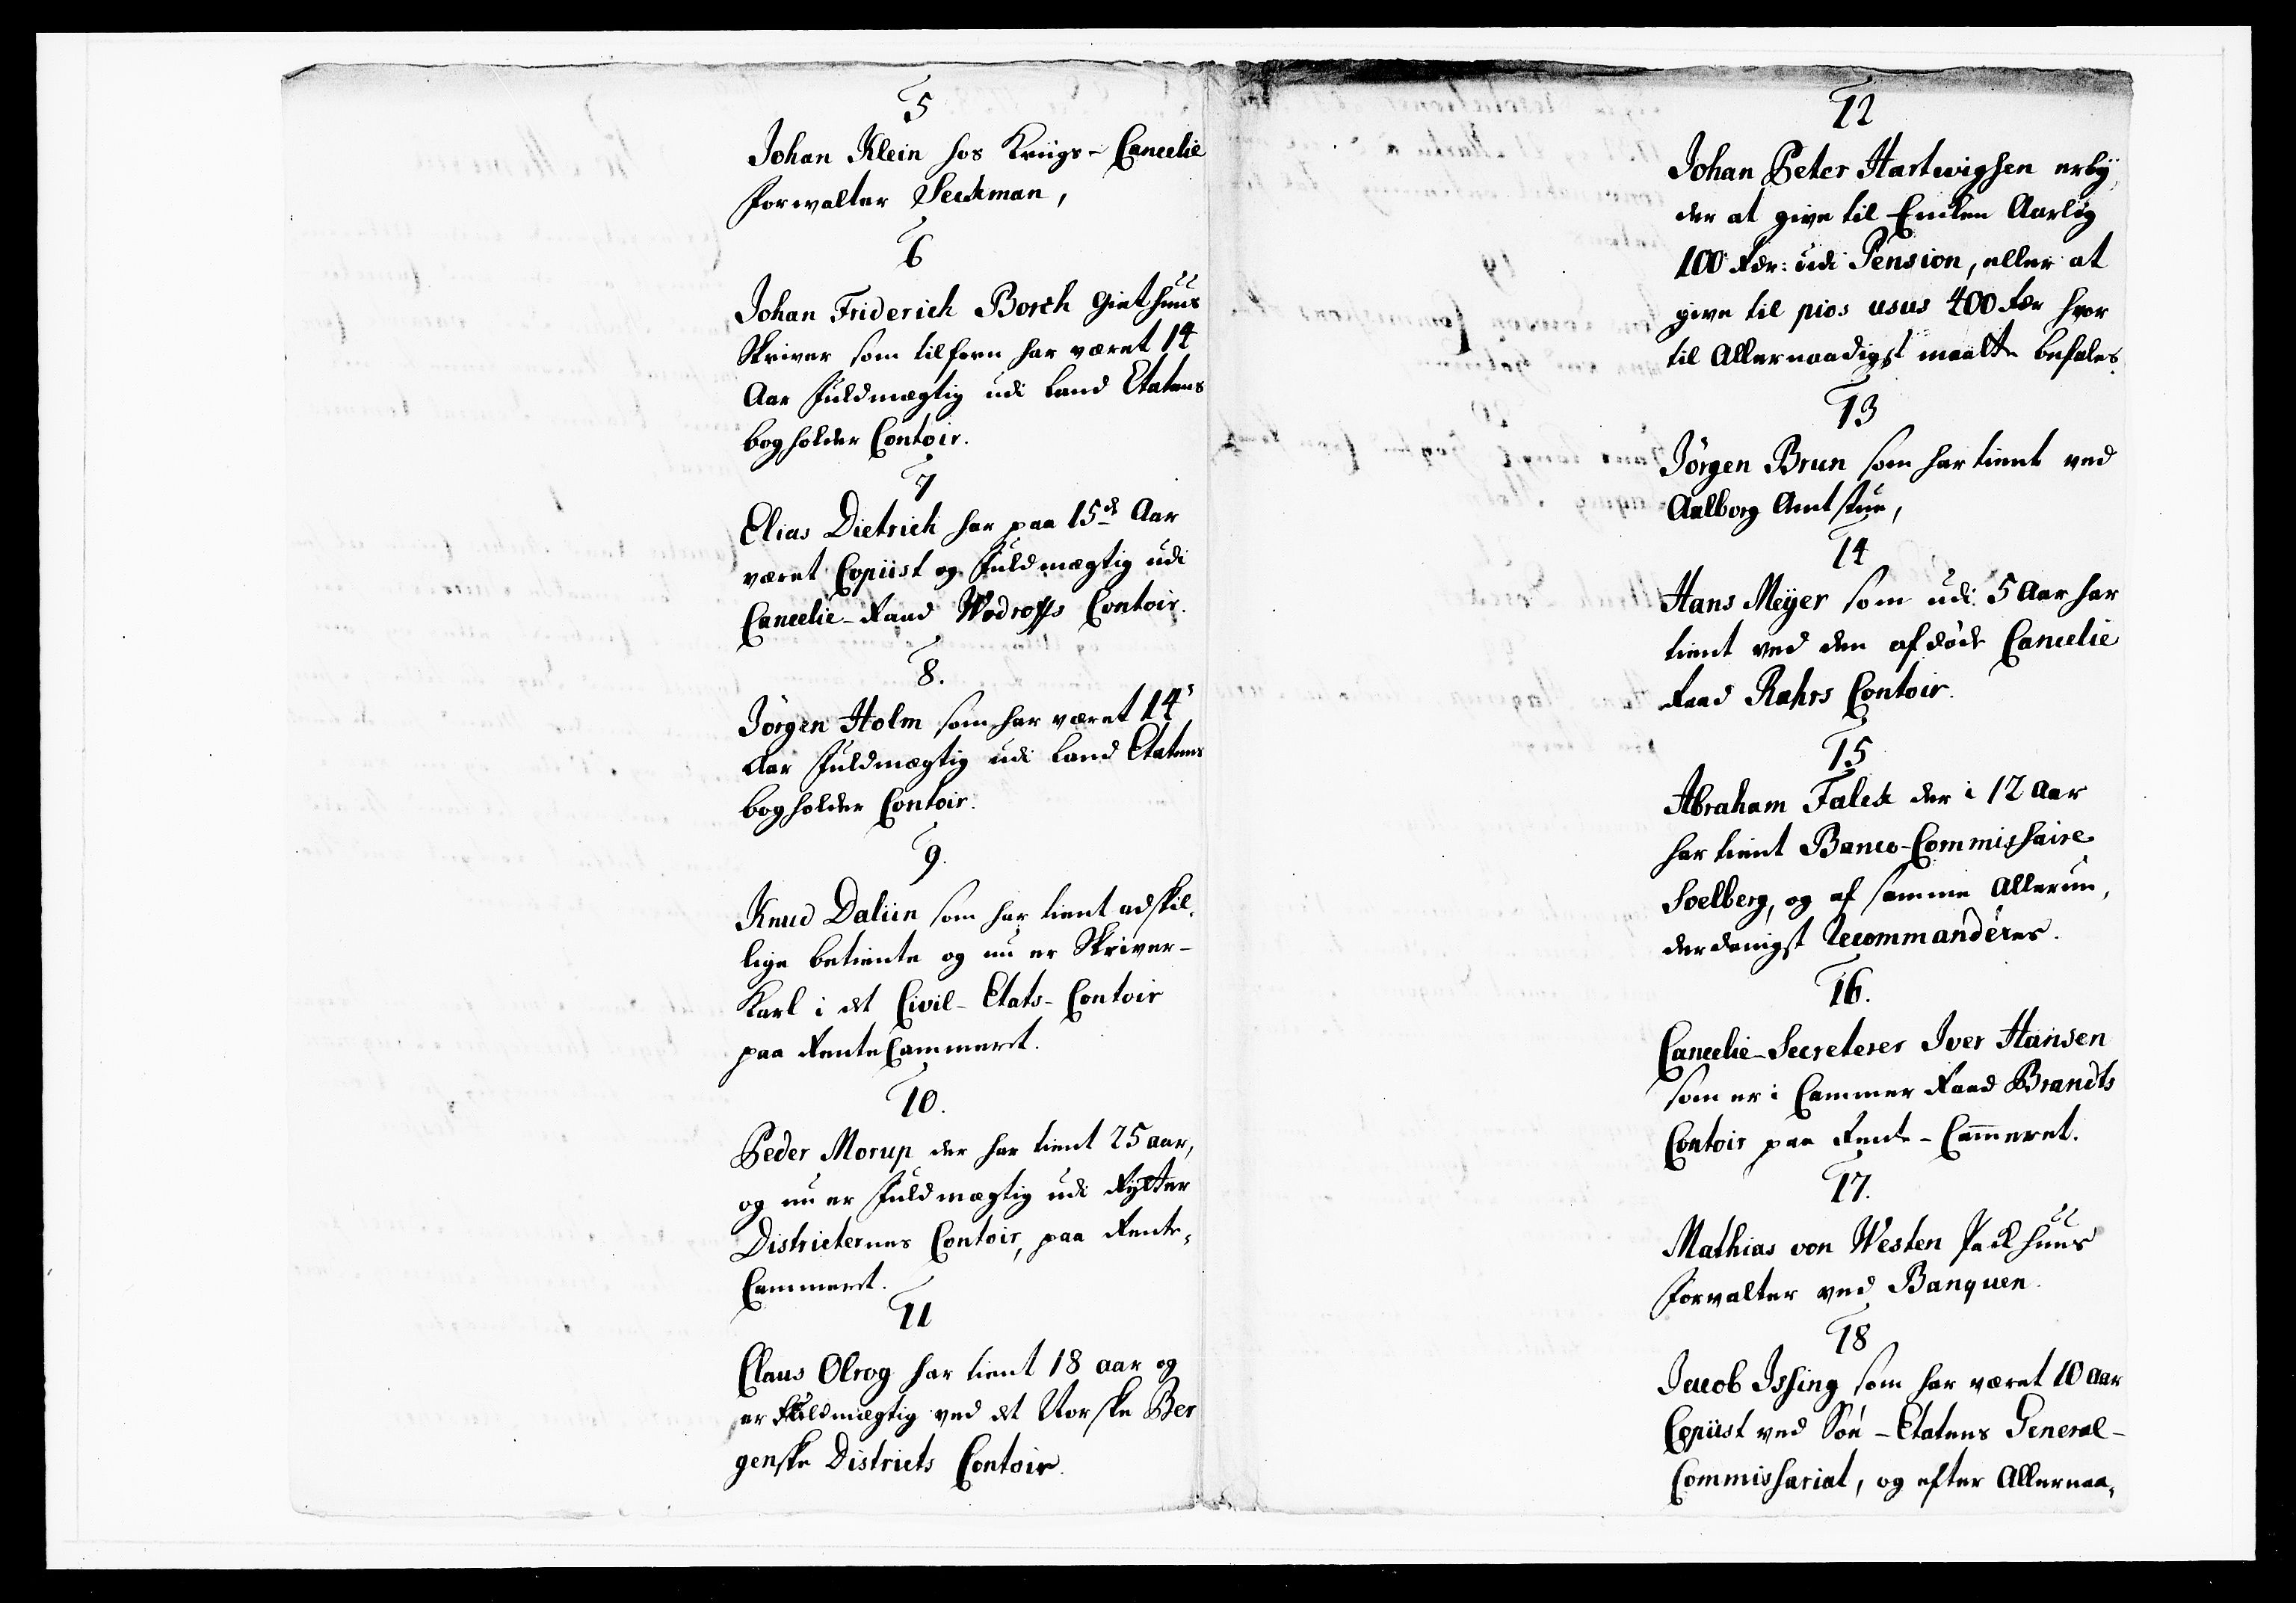 5
Johan Klein hos Kriigs-Cancelie
forvalter Seckman,
6
Johan Friderich Borch Giethuus
Skriver som tilforn har været 14
Aar fuldmægtig udi Land Etatens
bogholder Contoir.
7
Elias Dietrich har paa 15de Aar
været Copiist og fuldmægtig udi
Cancelie-Raad Wodroffs Contoir.
8.
Jörgen Holm som har været 14
Aar fuldmægtig udi Land Etatens
bogholder Contoir.
9.
Knud Daliin som har tient adskil,
lige betiente og nu er Skriver-
Karl i det Civil-Etats-Contoir
paa RenteCammeret.
10.
Peder Morup der har tient 25 aar,
og nu er fuldmægtig udi Rytter
Districternes Contoir, paa Rente,
Cammeret.
11
Claus Olrog har tient 18 aar og
er fuldmægtig ved det Norske Ber
genske Districts Contoir.
12
Johan Peter Hartwigsen erbÿ,
der at give til Encken Aarlig
100 Rdr: udi Pension, eller at
give til pios usus 400 Rdr hvor
til Allernaadigst maatte befales.
13
Jörgen Brun som har tient ved
Aalborg Amtstue,
14
Hans Meÿer som udi 5 Aar har
tient ved den afdöde Cancelie
Raad Rahrs Contoir.
15
Abraham Falck der i 12 Aar
har tient Banco-Commishaire
Soelberg, og af samme Allerun,
derdanigst Recommanderes.
16.
Cancelie-Secreterer Iver Hansen
som er i Cammer Raad Brandts
Contoir paa Rente-Cam̅eret.
17.
Mathias von Westen Packhuus
forvalter ved Banquen.
18
Jacob Ishing som har været 10 Aar
Copiist ved Söe-Etatens General-
Commishariat, og efter Allernaa,